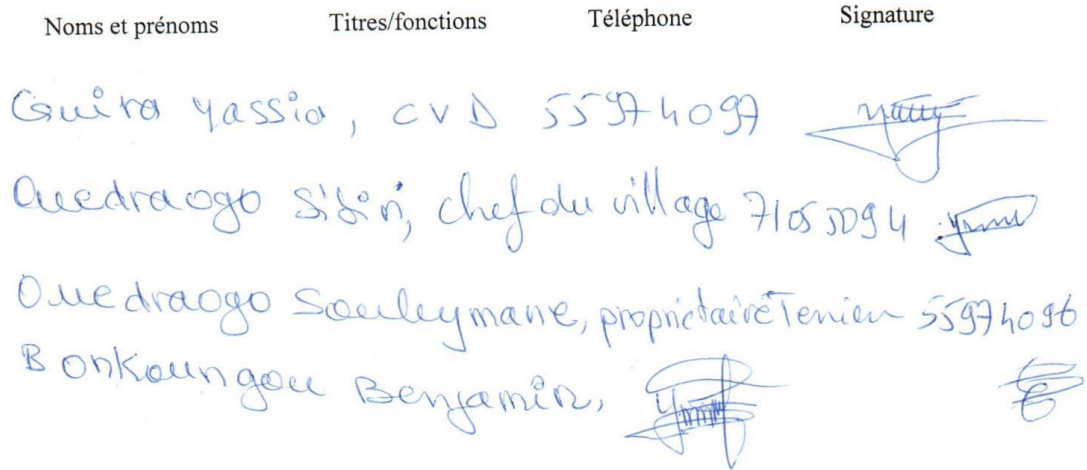 Noms et prénoms Titres/fonctions Téléphone Signature
Guira Yassia, CVD 55974097
Ouedraogo Sibiri, chef du village 71055094
Ouedraogo Souleymane, propriétaire Terrien 55974096
Bonkoungou Benjamin,